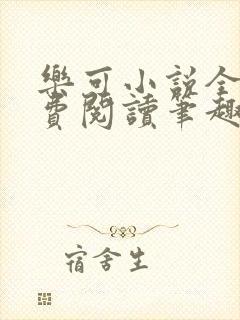 樂可小說全
費閱讀筆趣
宿舍生